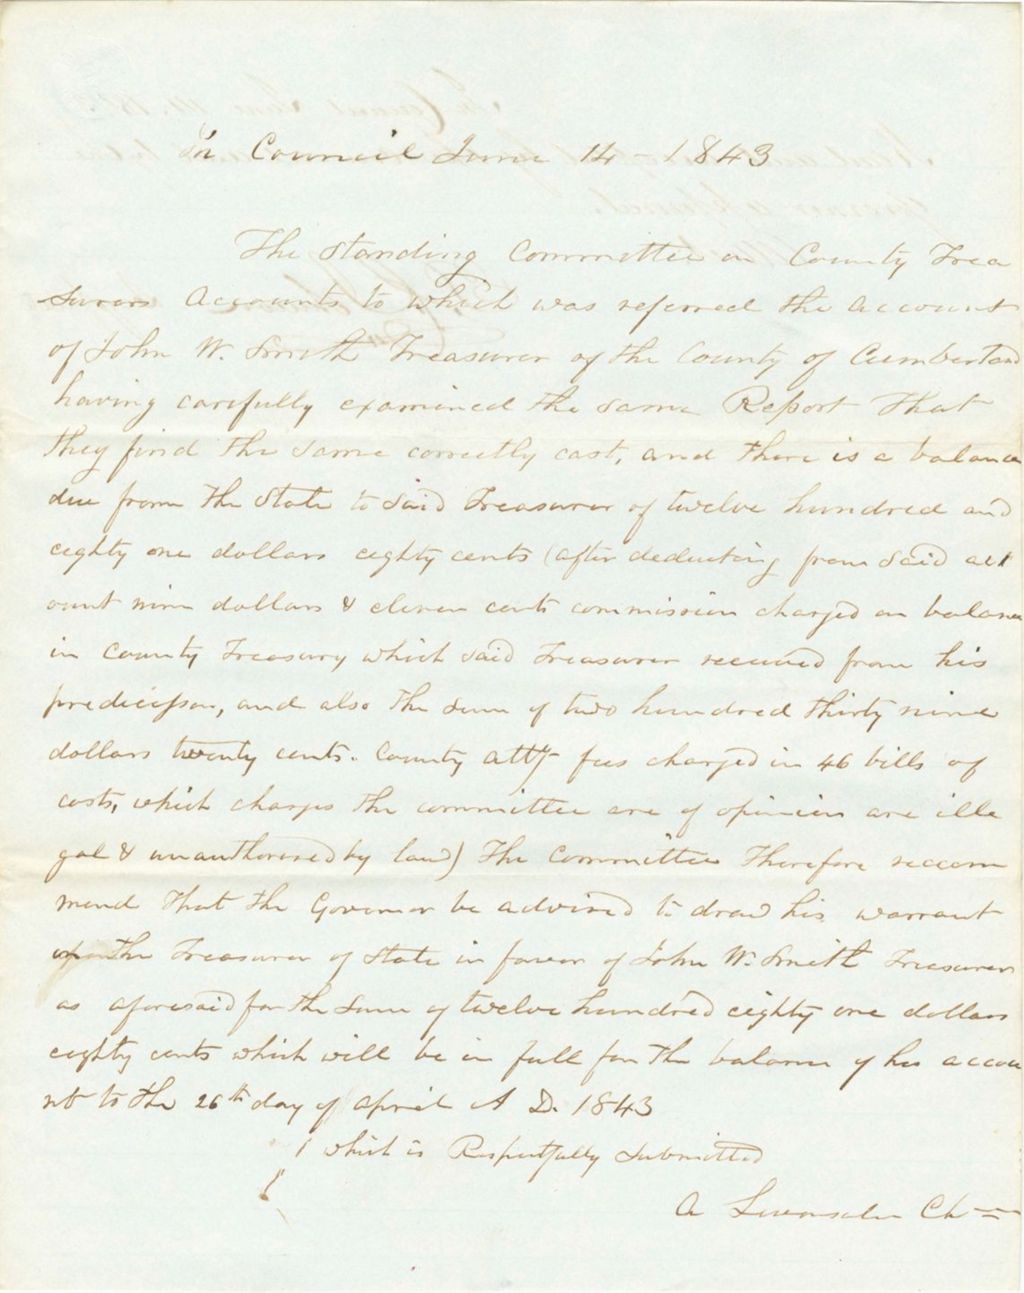 In Council June 14 - 1843
The Standing Committee on County Trea
surers Accounts to which was referred the account
of John W. Smith Treasurer of the County of Cumberland
having carefully examined the same Report That
they find the same correctly cast, and there is a balance
due from the State to said Treasurer of twelve hundred and
eighty one dollars eighty cents (after deducting from said acc
ount nine dollars & eleven cents commission charged on balance
in County Treasury which said Treasurer received from his
predecessor, and also the sum of two hundred thirty nine
dollars twenty cents. County atty fees charged in 46 bills of
costs, which charges the committee are of opinion are ille
gal & unauthorised by law) The Committee Therefore recom
mend That the Governor be advised to draw his warrant
upon the Treasurer of State in favor of John W. Smith Treasurer
as aforesaid for the sum of twelve hundred eighty one dollars
eighty cents which will be in full for the balance of his accou
nt to the 26th day of April A D. 1843
which is Respectfully Submitted
A Chm